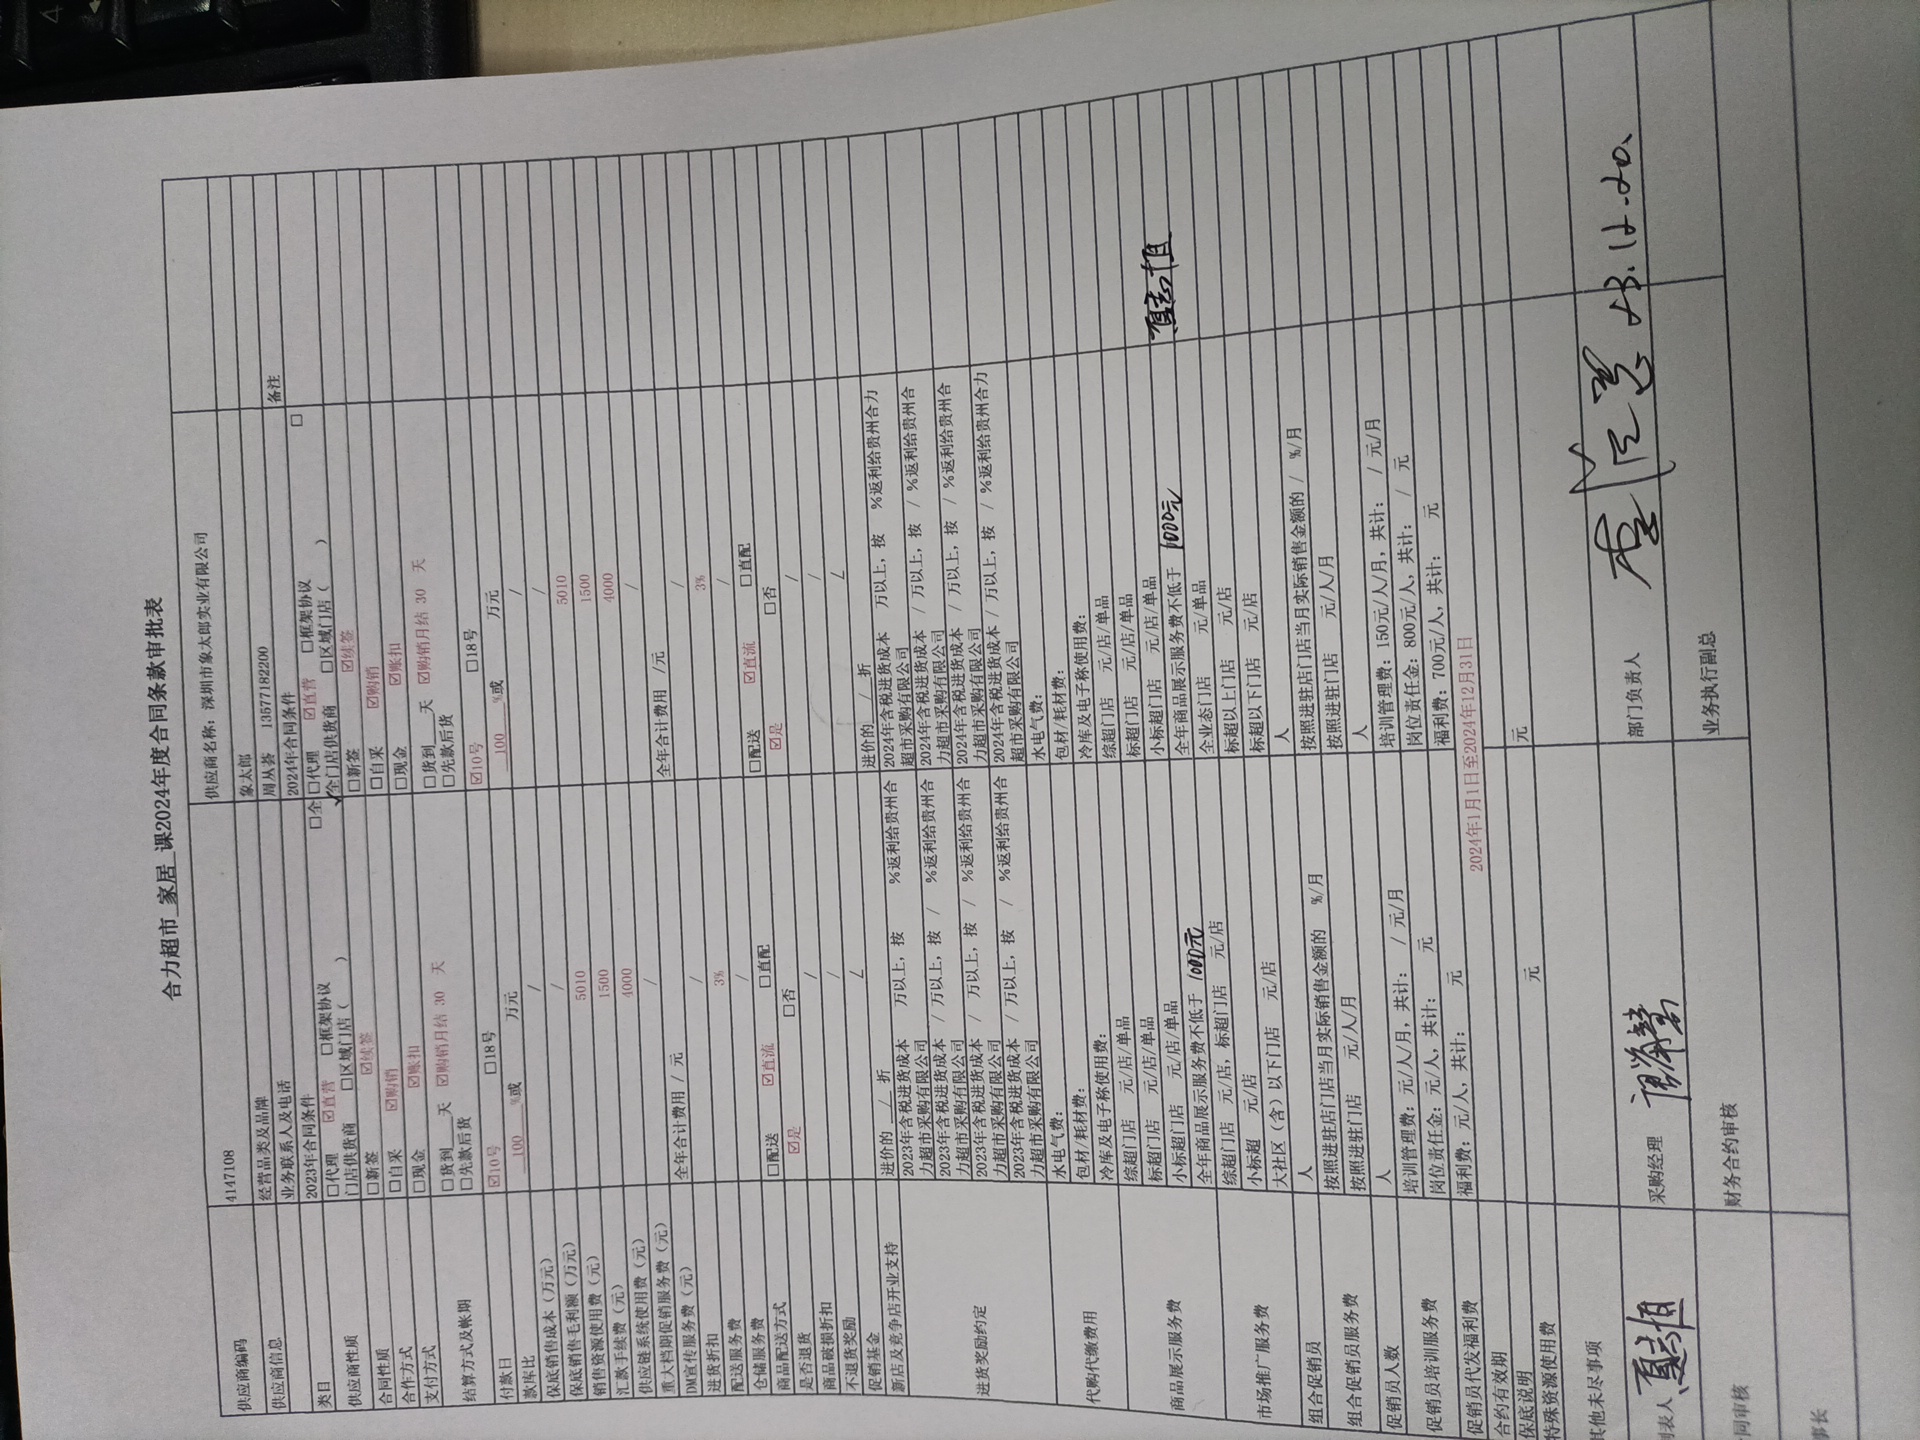 合力超市 家居 课2024年度合同条款审批表
供应商编码 4147108 供应商名称：深圳市象太郎实业有限公司
供应商信息 经营品类及品牌 象太郎
业务联系人及电话 周丛荟 13577182200
类目 2023年合同条件 2024年合同条件 备注
供应商性质 □代理 ☑直营 □框架协议 □全 □代理 ☑直营 □框架协议 □
门店供货商 □区域门店（ ） ✓全门店供货商 □区域门店（ ）
合同性质 □新签 ☑续签 □新签 ☑续签
合作方式 □自采 ☑购销 □自采 ☑购销
支付方式 □现金 ☑账扣 □现金 ☑账扣
结算方式及帐期 □货到__天 ☑购销月结 30 天 □货到__天 ☑购销月结 30 天
□先款后货 □先款后货
付款日 ☑10号 □18号 ☑10号 □18号
款库比 100 %或 万元 100 %或 万元
保底销售成本（万元） / /
保底销售毛利额（万元） / /
销售资源使用费（元） 5010 5010
汇款手续费（元） 1500 1500
供应链系统使用费（元） 4000 4000
重大档期促销服务费（元） / /
DM宣传服务费（元） 全年合计费用 / 元 全年合计费用 /元
进货折扣 / /
配送服务费 3% 3%
仓储服务费 / /
商品配送方式 □配送 ☑直流 □直配 □配送 ☑直流 □直配
是否退货 ☑是 □否 ☑是 □否
商品破损折扣 / /
不退货奖励 / /
促销基金 / /
新店及竞争店开业支持 进价的 / 折 进价的 / 折
进货奖励约定 2023年含税进货成本 万以上，按 %返利给贵州合力超市采购有限公司 2024年含税进货成本 万以上，按 %返利给贵州合力超市采购有限公司
2023年含税进货成本 / 万以上，按 / %返利给贵州合力超市采购有限公司 2024年含税进货成本 / 万以上，按 / %返利给贵州合力超市采购有限公司
2023年含税进货成本 / 万以上，按 / %返利给贵州合力超市采购有限公司 2024年含税进货成本 / 万以上，按 / %返利给贵州合力超市采购有限公司
2023年含税进货成本 / 万以上，按 / %返利给贵州合力超市采购有限公司 2024年含税进货成本 / 万以上，按 / %返利给贵州合力超市采购有限公司
代购代缴费用 水电气费： 水电气费：
包材/耗材费： 包材/耗材费：
冷库及电子称使用费： 冷库及电子称使用费：
商品展示服务费 综超门店 元/店/单品 综超门店 元/店/单品
标超门店 元/店/单品 标超门店 元/店/单品
小标超门店 元/店/单品 小标超门店 元/店/单品
全年商品展示服务费不低于 1000元 全年商品展示服务费不低于 1000元
市场推广服务费 综超门店 元/店，标超门店 元/店 全业态门店 元/店/单品
小标超 元/店 标超以上门店 元/店
大社区（含）以下门店 元/店 标超以下门店 元/店
组合促销员 人 人
组合促销员服务费 按照进驻店门店当月实际销售金额的 %/月 按照进驻店门店当月实际销售金额的 / %/月
按照进驻门店 元/人/月 按照进驻门店 元/人/月
促销员人数 人 人
促销员培训服务费 培训管理费：元/人/月，共计： / 元/月 培训管理费：150元/人/月，共计： / 元/月
岗位责任金：元/人，共计： 元 岗位责任金：800元/人，共计： / 元
促销员代发福利费 福利费：元/人，共计： 元 福利费：700元/人，共计： 元
合约有效期 2024年1月1日至2024年12月31日
保底说明
特殊资源使用费 元 元
其他未尽事项
制表人 采购经理 部门负责人 23.12.20.
合同审核 财务合约审核 业务执行副总
事长